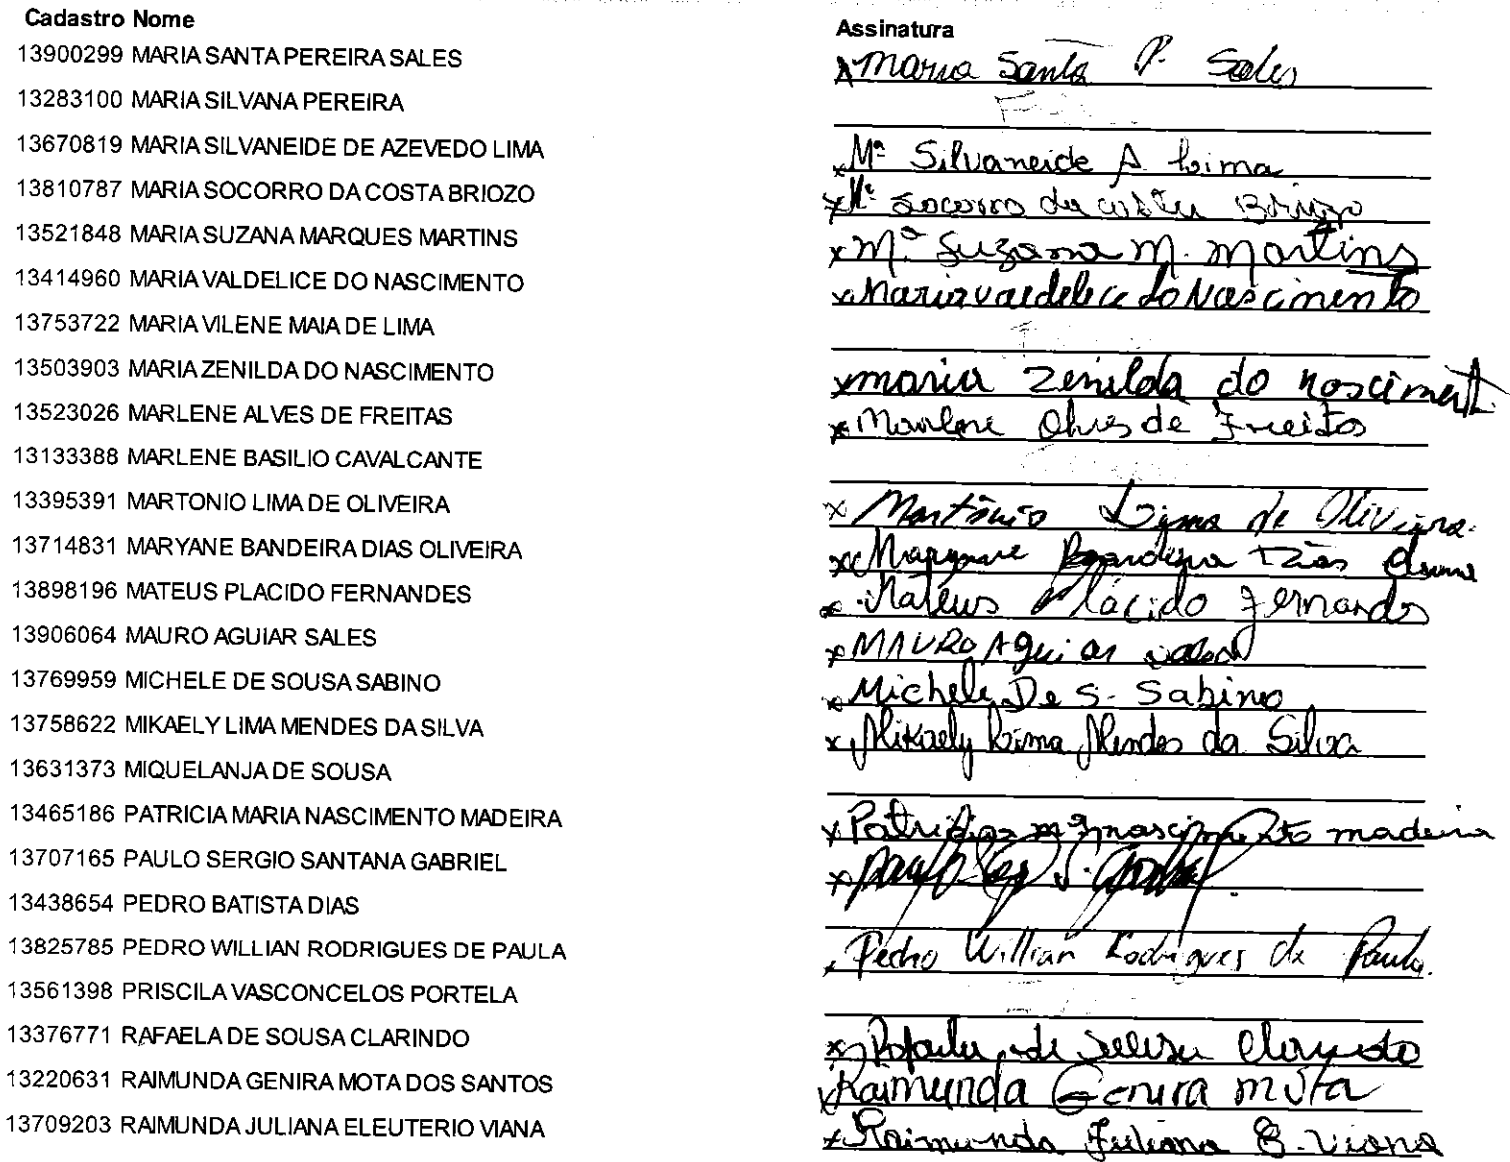 Cadastro Nome Assinatura
13900299 MARIA SANTA PEREIRA SALES x Maria Santa P. Sales
13283100 MARIA SILVANA PEREIRA
13670819 MARIA SILVANEIDE DE AZEVEDO LIMA x Mª Silvaneide A Lima
13810787 MARIA SOCORRO DA COSTA BRIOZO x Mª Socorro da Costa Briozo
13521848 MARIA SUZANA MARQUES MARTINS x Mª Suzana M. Martins
13414960 MARIA VALDELICE DO NASCIMENTO x Maria valdelice do Nascimento
13753722 MARIA VILENE MAIA DE LIMA
13503903 MARIA ZENILDA DO NASCIMENTO x maria zenilda do nasciment.
13523026 MARLENE ALVES DE FREITAS x Marlene Alves de Freitas
13133388 MARLENE BASILIO CAVALCANTE
13395391 MARTONIO LIMA DE OLIVEIRA x Martônio Lima de Oliveira.
13714831 MARYANE BANDEIRA DIAS OLIVEIRA x Maryane Bandeira Dias
13898196 MATEUS PLACIDO FERNANDES x Mateus Plácido Fernandes
13906064 MAURO AGUIAR SALES x MAURO Aguiar Sales
13769959 MICHELE DE SOUSA SABINO x Michele De S. Sabino
13758622 MIKAELY LIMA MENDES DA SILVA x Mikaely Lima Mendes da Silva
13631373 MIQUELANJA DE SOUSA
13465186 PATRICIA MARIA NASCIMENTO MADEIRA x Patricia mª nascimento madeira
13707165 PAULO SERGIO SANTANA GABRIEL x Paulo S.
13438654 PEDRO BATISTA DIAS
13825785 PEDRO WILLIAN RODRIGUES DE PAULA x Pedro Willian Rodrigues de Paula.
13561398 PRISCILA VASCONCELOS PORTELA
13376771 RAFAELA DE SOUSA CLARINDO x Rafaela de Sousa Clarindo
13220631 RAIMUNDA GENIRA MOTA DOS SANTOS x Raimunda Genira mota
13709203 RAIMUNDA JULIANA ELEUTERIO VIANA x Raimunda Juliana E. Viana